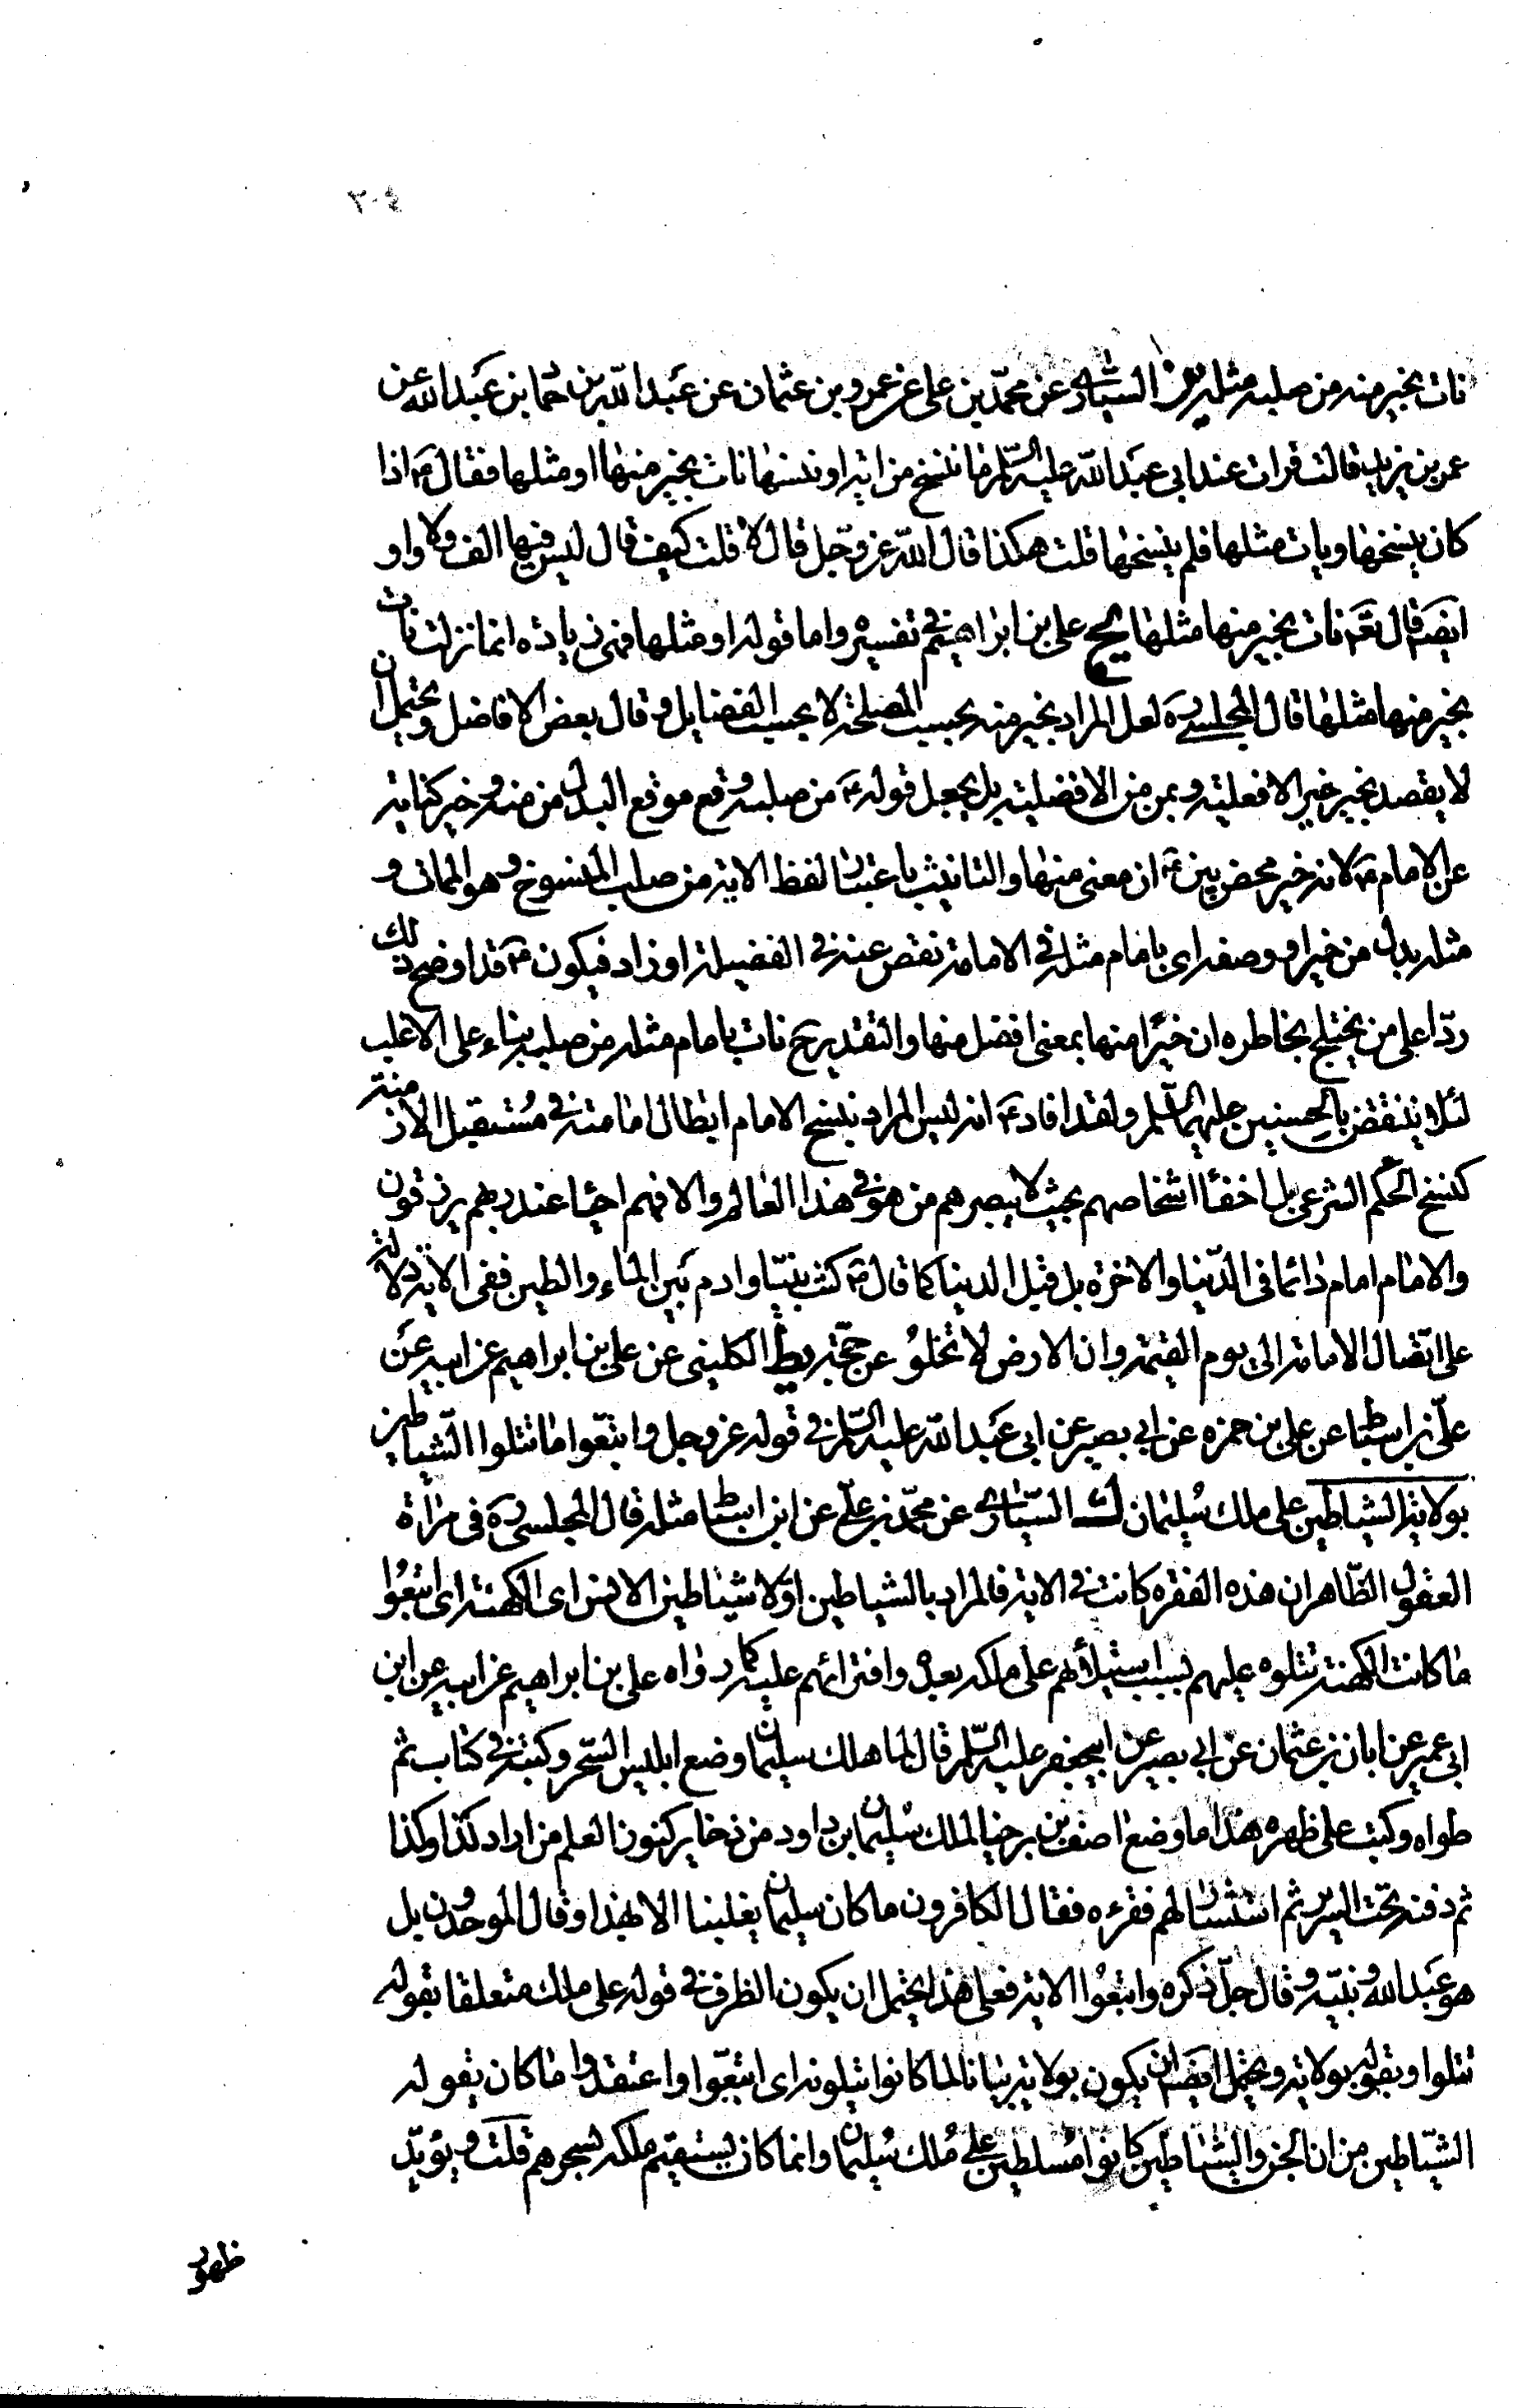 ٣٠٤
نات بخير منه من صلبه مثله يز السيارى عن محمد بن على عن عمرو بن عثمان عن عبد الله بن حماد بن عبد الله عن
عمر بن يزيد قال قرات عند ابى عبد الله عليه السلم ما ننسخ من اية او ننسها نات بخير منها او مثلها فقال ع اذا
كان ينسخها ويات مثلها فلم ينسخها قلت هكذا قال الله عز وجل قال لا قلت كيف قال ليس فيها الف ولا واو
ايضا قال تع نات بخير منها مثلها يح على بن ابراهيم فى تفسيره واما قوله او مثلها فهى زيادة انما نزلت نات
بخير منها مثلها قال المجلسى ره لعل المراد بخير منه بحسب المصلحة لا بحسب الفضايل وقال بعض الافاضل ويحتمل ان
لا يقصد بخير غير الافعلية وبمن من الافضلية بل يجعل قوله ع من صلبه وقع موقع البدل من منه وخير كناية
عن الامام ع لانه خير محض بين ع ان معنى منها والتانيث باعتبار لفظ الاية من صلب المنسوخ وهو الماتى و
مثله بدل من خير او وصفه اى بامام مثله فى الامامة نقص عنه فى الفضيلة او زاد فيكون ع قد اوضح ذلك
ردا على من يختلج بخاطره ان خيرا منها بمعنى افضل منها والتقدير ح نات بامام مثله من صلبه بناء على الاغلب
لئلا ينتقض بالحسنين عليهما السلم ولقد افاد ع انه ليس المراد بنسخ الامام ابطال امامته فى مستقبل الازمنة
كنسخ الحكم الشرعى بل اخفا اشخاصهم بحيث لا يبصرهم من هو فى هذا العالم والا فهم احياء عند ربهم يرزقون
والامام امام دائما فى الدنيا والاخرة بل قبل الدنيا كما قال ص كنت نبيا وادم بين الماء والطين ففى الاية دلالة
على اتصال الامامة الى يوم القيمة وان الارض لا تخلو عن حجة يط الكلينى عن على بن ابراهيم عن ابيه عن
على بن اسباط عن على بن حمزه عن ابى بصير عن ابى عبد الله عليه السلم فى قوله عز وجل واتبعوا ما تتلوا الشياطين
بولاية الشياطين على ملك سليمان ك السيارى عن محمد بن على عن ابن اسباط مثله قال المجلسى ره فى مراة
العقول الظاهر ان هذه الفقره كانت فى الاية فالمراد بالشياطين اولا شياطين الانس اى الكهنة اى اتبعوا
ما كانت الكهنة تتلوه عليهم بسبب استيلائهم على ملكه بعده وافترائهم عليه كما رواه على بن ابراهيم عن ابيه عن ابن
ابى عمير عن ابان بن عثمان عن ابى بصير عن ابيجعفر عليه السلم قال لما هلك سليمان وضع ابليس السحر وكتبه فى كتاب ثم
طواه وكتب على ظهره هذا ما وضع اصف بن برخيا لملك سليمان بن داود من ذخاير كنوز العلم من اراد كذا وكذا
ثم دفنه تحت السرير ثم استشاره لهم فقرءه فقال الكافرون ما كان سليمان يغلبنا الا بهذا وقال الموحدون بل
هو عبد الله ونبيه وقال جل ذكره واتبعوا الاية فعلى هذا يحتمل ان يكون الظرف فى قوله على ملك متعلقا بقوله
تتلوا وبقوله بولاية ويحتمل ايضا ان يكون بولاية بيانا لما كانوا يتلونه اى اتبعوا واعتقدوا ما كان يقوله
الشياطين من ان الجن والشياطين كانوا مسلطين على ملك سليمان وانما كان يستقيم ملكه بسحرهم قلت ويؤيد
ظهور